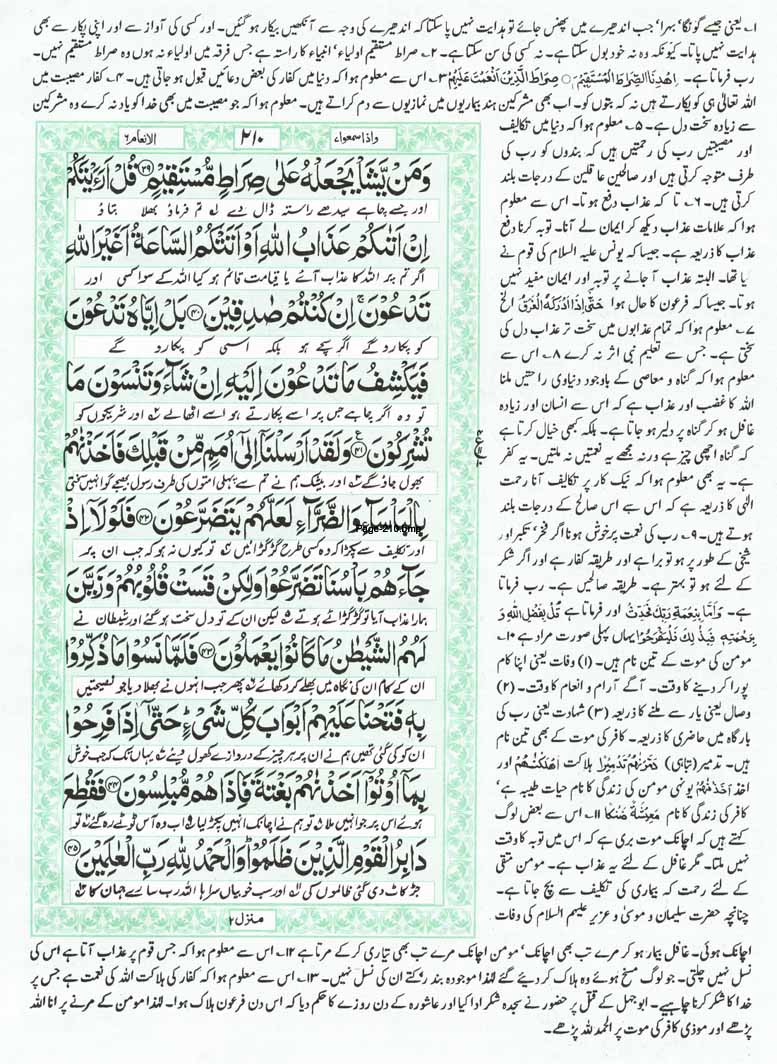 ۱۔ یعنی جیسے گونگا‘ بہرا‘ جب اندھیرے میں پھنس جائے تو ہدایت نہیں پا سکتا کہ اندھیرے کی وجہ سے آنکھیں بیکار ہو گئیں۔ اور کسی کی آواز سے اور اپنی پکار سے بھی
ہدایت نہیں پاتا۔ کیونکہ وہ نہ خود بول سکتا ہے۔ نہ کسی کی سن سکتا ہے۔ ۲۔ صراط مستقیم اولیاء‘ انبیاء کا راستہ ہے جس فرقہ میں اولیاء نہ ہوں وہ صراط مستقیم نہیں۔
رب فرماتا ہے۔ اِهْدِنَا الصِّرَاطَ الْمُسْتَقِيْمَ ○ صِرَاطَ الَّذِيْنَ اَنْعَمْتَ عَلَيْهِمْ ۳۔ اس سے معلوم ہوا کہ دنیا میں کفار کی بعض دعائیں قبول ہو جاتی ہیں۔ ۴۔ کفار مصیبت میں
اللہ تعالیٰ ہی کو پکارتے ہیں نہ کہ بتوں کو۔ اب بھی مشرکین ہند بیماریوں میں نمازیوں سے دم کراتے ہیں۔ معلوم ہوا کہ جو مصیبت میں بھی خدا کو یاد نہ کرے وہ مشرکین
سے زیادہ سخت دل ہے۔ ۵۔ معلوم ہوا کہ دنیا میں تکالیف
اور مصیبتیں رب کی رحمتیں ہیں کہ بندوں کو رب کی
طرف متوجہ کرتی ہیں اور صالحین عاقلین کے درجات بلند
کرتی ہیں۔ ۶۔ تا کہ عذاب دفع ہوتا۔ اس سے معلوم
ہوا کہ علامات عذاب دیکھ کر ایمان لے آنا۔ توبہ کرنا دفع
عذاب کا ذریعہ ہے۔ جیسا کہ یونس علیہ السلام کی قوم نے
کیا تھا۔ البتہ عذاب آ جانے پر توبہ اور ایمان مفید نہیں
ہوتا۔ جیسا کہ فرعون کا حال ہوا حَتّٰى اِذَا اَدْرَكَهُ الْغَرَقُ الخ
۷۔ معلوم ہوا کہ تمام عذابوں میں سخت تر عذاب دل کی
سختی ہے۔ جس سے تعلیم نبی اثر نہ کرے ۸۔ اس سے
معلوم ہوا کہ گناہ و معاصی کے باوجود دنیاوی راحتیں ملنا
اللہ کا غضب اور عذاب ہے کہ اس سے انسان اور زیادہ
غافل ہو کر گناہ پر دلیر ہو جاتا ہے۔ بلکہ کبھی خیال کرتا ہے
کہ گناہ اچھی چیز ہے ورنہ مجھے یہ نعمتیں نہ ملتیں۔ یہ کفر
ہے۔ یہ بھی معلوم ہوا کہ نیک کار پر تکالیف آنا رحمت
الٰہی کا ذریعہ ہے کہ اس سے اس صالح کے درجات بلند
ہوتے ہیں۔ ۹۔ رب کی نعمت پر خوش ہونا اگر فخر‘ تکبر اور
شیخی کے طور پر ہو تو برا ہے اور طریقہ کفار ہے اور اگر شکر
کے لئے ہو تو بہتر ہے۔ طریقہ صالحین ہے۔ رب فرماتا
ہے۔ وَاَمَّا بِنِعْمَةِ رَبِّكَ فَحَدِّثْ اور فرماتا ہے قُلْ بِفَضْلِ اللّٰهِ وَ
بِرَحْمَتِهٖ فَبِذٰلِكَ فَلْيَفْرَحُوْا یہاں پہلی صورت مراد ہے ۱۰۔
مومن کی موت کے تین نام ہیں۔ (۱) وفات یعنی اپنا کام
پورا کر دینے کا وقت۔ آگے آرام و انعام کا وقت۔ (۲)
وصال یعنی یار سے ملنے کا ذریعہ (۳) شہادت یعنی رب کی
بارگاہ میں حاضری کا ذریعہ۔ کافر کی موت کے بھی تین نام
ہیں۔ تدمیر (تباہی) دَمَّرْنٰهُمْ تَدْمِيْرًا ہلاکت اَهْلَكْنٰهُمْ اور
اخذ اَخَذْنٰهُمْ یونہی مومن کی زندگی کا نام حیات طیبہ ہے‘
کافر کی زندگی کا نام مَعِيْشَةً ضَنْكًا ۱۱۔ اس سے بعض لوگ
کہتے ہیں کہ اچانک موت بری ہے کہ اس میں توبہ کا وقت
نہیں ملتا۔ مگر غافل کے لئے یہ عذاب ہے۔ مومن متقی
کے لئے رحمت کہ بیماری کی تکلیف سے بچ جاتا ہے۔
چنانچہ حضرت سلیمان و موسیٰ و عزیر علیہم السلام کی وفات
واذا سمعوا۷
۲۱۰
الانعام۶
وَمَنْ يَّشَاْ يَجْعَلْهُ عَلٰى صِرَاطٍ مُّسْتَقِيْمٍ ۳۹ قُلْ اَرَءَيْتَكُمْ
اور جسے چاہے سیدھے راستہ ڈال دے تم فرماؤ بھلا بتاؤ
اِنْ اَتٰىكُمْ عَذَابُ اللّٰهِ اَوْ اَتَتْكُمُ السَّاعَةُ اَغَيْرَ اللّٰهِ
اگر تم پر اللہ کا عذاب آئے یا قیامت قائم ہو کیا اللہ کے سوا کسی اور
تَدْعُوْنَ ۚ اِنْ كُنْتُمْ صٰدِقِيْنَ ۴۰ بَلْ اِيَّاهُ تَدْعُوْنَ
کو پکارو گے اگر سچے ہو بلکہ اسی کو پکارو گے
فَيَكْشِفُ مَا تَدْعُوْنَ اِلَيْهِ اِنْ شَآءَ وَتَنْسَوْنَ مَا
تو وہ اگر چاہے جس پر اسے پکارتے ہو اسے اٹھا لے اور شریکوں کو
تُشْرِكُوْنَ ۴۱ وَلَقَدْ اَرْسَلْنَآ اِلٰٓى اُمَمٍ مِّنْ قَبْلِكَ فَاَخَذْنٰهُمْ
بھول جاؤ گے اور بیشک ہم نے تم سے پہلی امتوں کی طرف رسول بھیجے تو انہیں سختی
بِالْبَاْسَآءِ وَالضَّرَّآءِ لَعَلَّهُمْ يَتَضَرَّعُوْنَ ۴۲ فَلَوْلَآ اِذْ
Page-210.bmp
اور تکلیف سے پکڑا کہ وہ کسی طرح گڑگڑائیں تو کیوں نہ ہوا کہ جب ان پر
جَآءَهُمْ بَاْسُنَا تَضَرَّعُوْا وَلٰكِنْ قَسَتْ قُلُوْبُهُمْ وَزَيَّنَ
ہمارا عذاب آیا تو گڑگڑائے ہوتے لیکن ان کے تو دل سخت ہو گئے اور شیطان نے
لَهُمُ الشَّيْطٰنُ مَا كَانُوْا يَعْمَلُوْنَ ۴۳ فَلَمَّا نَسُوْا مَا ذُكِّرُوْا
ان کے کام ان کی نگاہ میں بھلے کر دکھائے پھر جب انہوں نے بھلا دیا جو نصیحتیں
بِهٖ فَتَحْنَا عَلَيْهِمْ اَبْوَابَ كُلِّ شَيْءٍ حَتّٰٓى اِذَا فَرِحُوْا
ان کو کی گئی تھیں ہم نے ان پر ہر چیز کے دروازے کھول دیئے یہاں تک کہ جب خوش
بِمَآ اُوْتُوْٓا اَخَذْنٰهُمْ بَغْتَةً فَاِذَا هُمْ مُّبْلِسُوْنَ ۴۴ فَقُطِعَ
ہوئے اس پر جو انہیں ملا تو ہم نے اچانک انہیں پکڑ لیا اب وہ آس ٹوٹے رہ گئے تو
دَابِرُ الْقَوْمِ الَّذِيْنَ ظَلَمُوْا وَالْحَمْدُ لِلّٰهِ رَبِّ الْعٰلَمِيْنَ ۴۵
جڑ کاٹ دی گئی ظالموں کی اور سب خوبیاں سراہا اللہ رب سارے جہان کا
منزل۲
اچانک ہوئی۔ غافل بیمار ہو کر مرے تب بھی اچانک‘ مومن اچانک مرے تب بھی تیاری کر کے مرتا ہے ۱۲۔ اس سے معلوم ہوا کہ جس قوم پر عذاب آتا ہے اس کی
نسل نہیں چلتی۔ جو لوگ مسخ ہوئے وہ ہلاک کر دیئے گئے لہٰذا موجودہ بندر بکتے ان کی نسل نہیں۔ ۱۳۔ اس سے معلوم ہوا کہ کفار کی ہلاکت اللہ کی نعمت ہے جس پر
خدا کا شکر کرنا چاہیے۔ ابوجہل کے قتل پر حضور نے سجدہ شکر ادا کیا اور عاشورہ کے دن روزے کا حکم دیا کہ اس دن فرعون ہلاک ہوا۔ لہٰذا مومن کے مرنے پر انا للہ
پڑھے اور موذی کافر کی موت پر الحمد للہ پڑھے۔